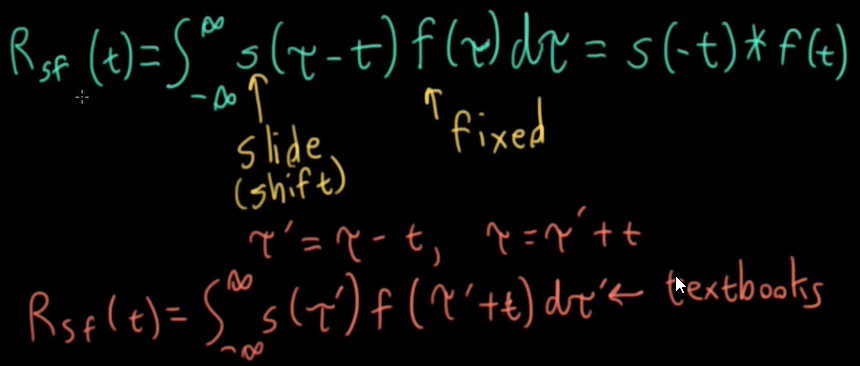 R_sf (t) = ∫_{-∞}^{∞} s(τ-t) f(τ) dτ = s(-t) * f(t)
↑ ↑
slide fixed
(shift)
τ' = τ - t, τ = τ' + t
R_sf (t) = ∫_{-∞}^{∞} s(τ') f(τ'+t) dτ' ← textbooks